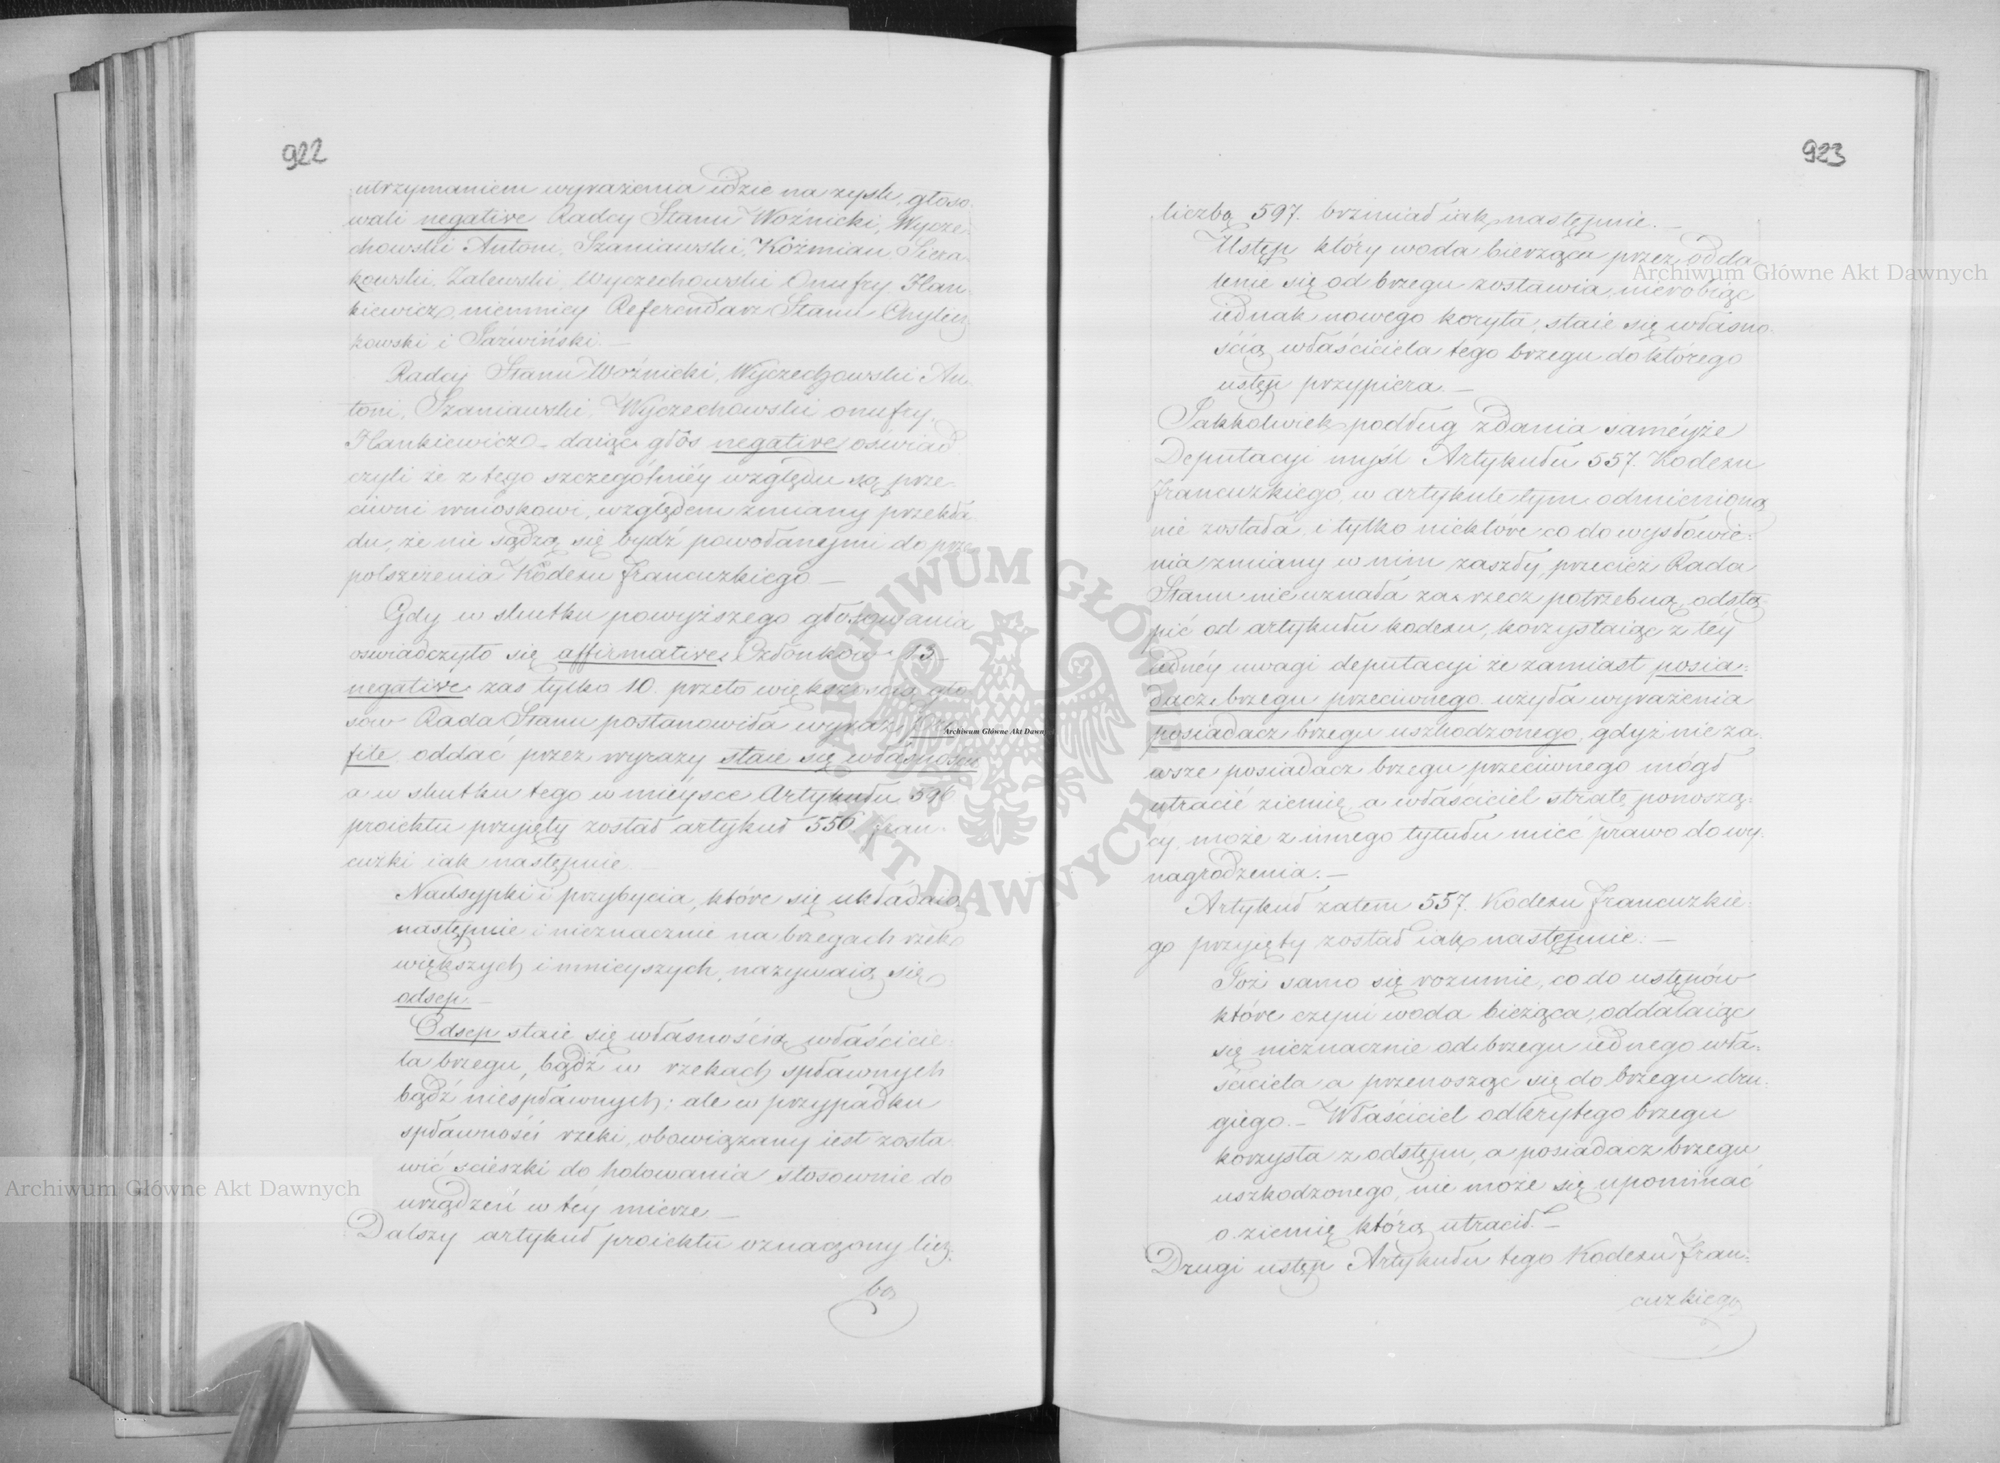 922
utrzymaniem wyrażenia idzie na zysk, głoso
wali negative Radcy Stanu Woźnicki, Wycze
chowski Antoni, Szaniawski, Koźmian, Siera
kowski, Zalewski, Wyczechowski Onufry, Han
kiewicz, niemniey Referendarz Stanu Chylicz
kowski i
Radcy Stanu Woźnicki, Wyczechowski An
toni, Szaniawski, Wyczechowski onufry,
Hankiewicz – daiąc głos negative oświad
czyli że z tego szczególniéy względu są prze
ciwni wnioskowi, względem zmiany przekła
du, że nie sądzą się bydź powołanymi do prze
polszczenia Kodexu francuzkiego –
Gdy w skutku powyższego głosowania
oswiadczyło się affirmative Członków 13
negative zas tylko 10. przeto większością gło
sów Rada Stanu postanowiła wyraz pro
fite oddać przez wyrazy staie się własnością
a w skutku tego w mieysce Artykułu 596
proiektu przyięty został artykuł 556 fran
cuzki iak następuie –
Nadsypki i przybycia, które się układaią
następnie i nieznacznie na brzegach rzek
większych i mnieyszych, nazywaią się
odsep –
Odsep staie się własnością właścicie
la brzegu, bądź w rzekach spławnych
bądź niespławnych; ale w przypadku
spławności rzeki, obowiązany iest zosta
wić scieszki do holowania stosownie do
urządzeń w téy mierze –
Dalszy artykuł proiektu oznaczony licz
bą
923
liczbą 597. brzmiał iak następuie. –
Ustęp który woda bierząca przez odda
lenie się od brzegu zostawia, nierobiąc
iednak nowego koryta, staie się własno
ścią właściciela tégo brzegu do którego
ustęp przypiera. –
Jakkolwiek podług zdania saméyże
Deputacyi myśl Artykułu 557. Kodexu
francuzkiégo, w artykule tym odmienioną
nie została, i tylko niektóre co do wysłowie=
nia zmiany w nim zaszły, przecież Rada
Stanu nie uznała za rzecz potrzebną odstą
pić od artykułu kodexu, korzystaiąc z téy
iednéy uwagi deputacyi że zamiast posia=
dacz brzegu przeciwnego użyła wyrażenia
posiadacz brzegu uszkodzonego, gdyż nie za=
wsze posiadacz brzegu przeciwnego mógł
utracić ziemię, a właściciel stratę ponoszą=
cy, może z innego tytułu mieć prawo do wy=
nagrodzenia. –
Artykuł zatem 557. Kodexu francuzkie=
go przyięty został iak następuie: –
Toż samo się rozumie, co do ustępów
które czyni woda bieżąca, oddalaiąc
się nieznacznie od brzegu iednego wła=
ściciela a przenosząc się do brzegu dru=
giego. – Właściciel odkrytego brzegu
korzysta z odstępu, a posiadacz brzegu
uszkodzonego, nie może się upominać
o ziemię którą utracił. –
Drugi ustęp Artykułu tego Kodexu fran=
cuzkiego
Archiwum Główne Akt Dawnych
Archiwum Główne Akt Dawnych
Archiwum Główne Akt Dawnych
ARCHIWUM GŁÓWNE AKT DAWNYCH